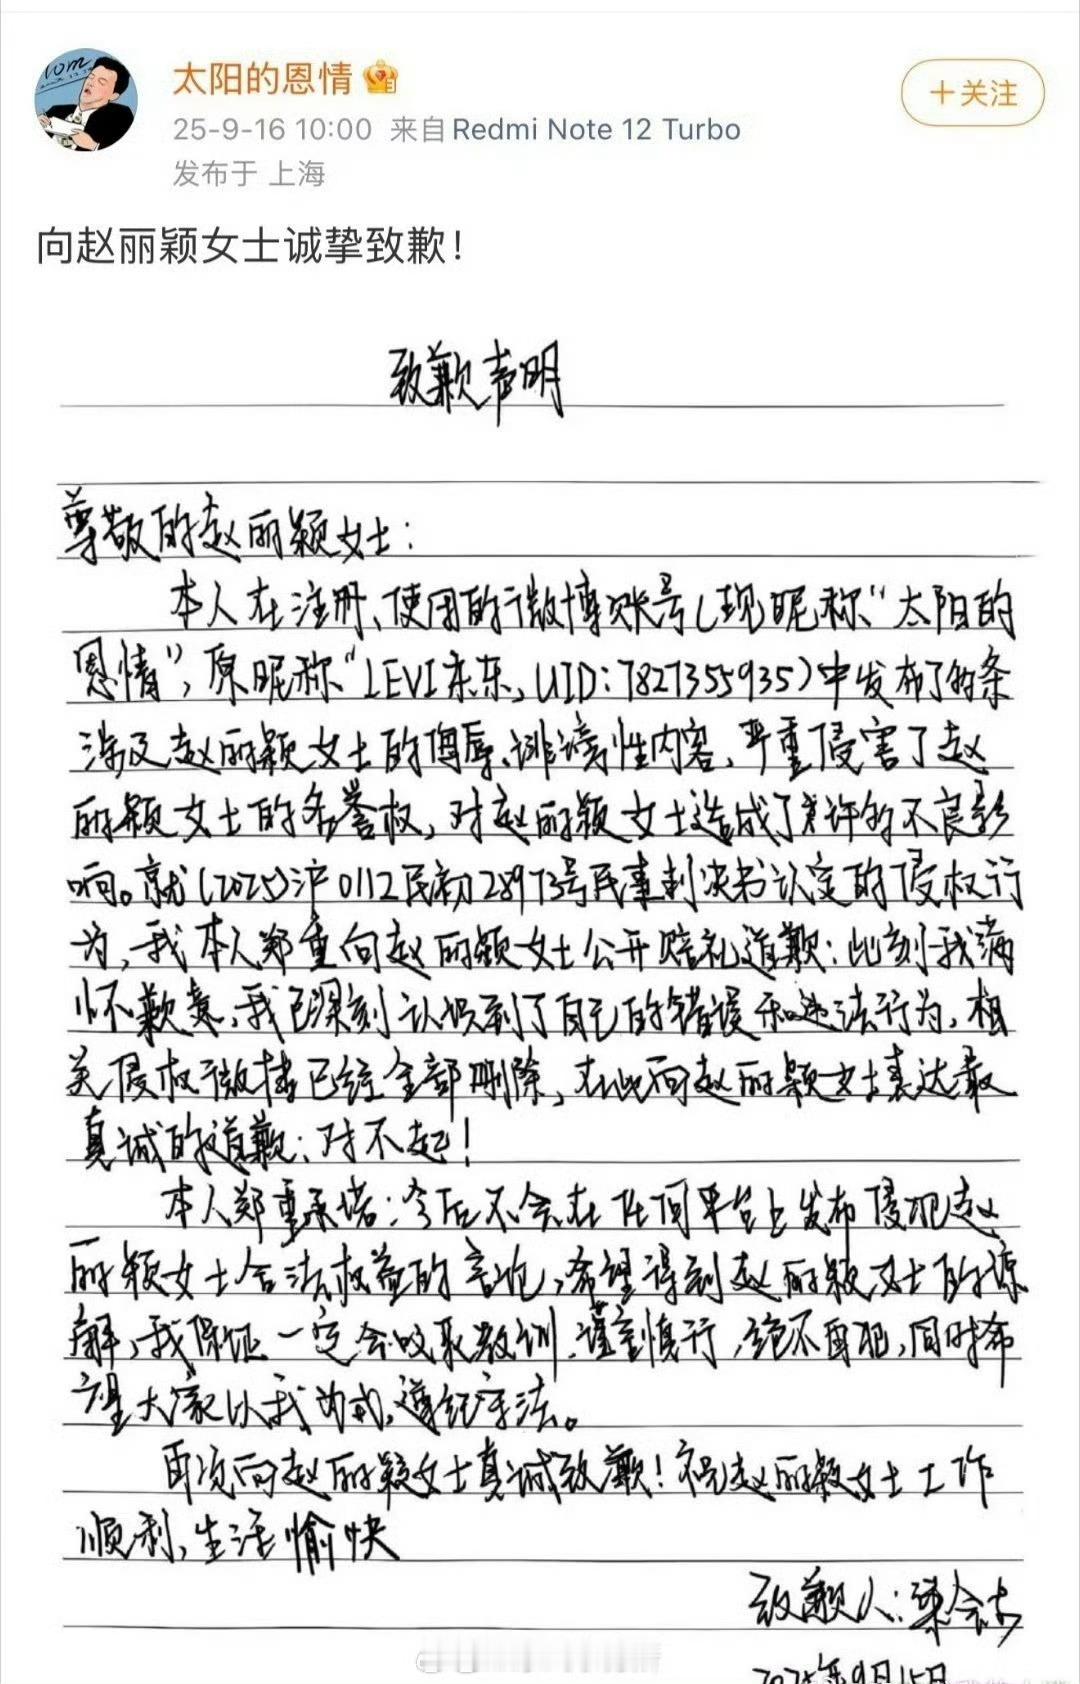 太阳的恩情
+关注
25-9-16 10:00 来自 Redmi Note 12 Turbo
发布于 上海
向赵丽颖女士诚挚致歉！
致歉声明
尊敬的赵丽颖女士：
本人在注册、使用的微博账号（现昵称“太阳的
恩情”，原昵称“LEVI东东，UID：7827355935）中发布了的条
涉及赵丽颖女士的侮辱、诽谤性内容，严重侵害了赵
丽颖女士的名誉权，对赵丽颖女士造成了来许的不良影
响。就（2025）沪0112民初28973号民事判决书认定的侵权行
为，我本人郑重向赵丽颖女士公开赔礼道歉：此刻我满
怀歉意，我已深刻认识到了自己的错误和违法行为，相
关侵权微博已经全部删除，在此向赵丽颖女士表达最
真诚的道歉：对不起！
本人郑重承诺：今后不会在任何平台上发布侵犯赵
丽颖女士合法权益的言论，希望得到赵丽颖女士的谅
解，我保证一定会吸取教训、谨言慎行，绝不再犯，同时希
望大家以我为戒，遵纪守法。
再次向赵丽颖女士真诚致歉！祝赵丽颖女士工作
顺利，生活愉快
致歉人：梁会
2025年9月15日